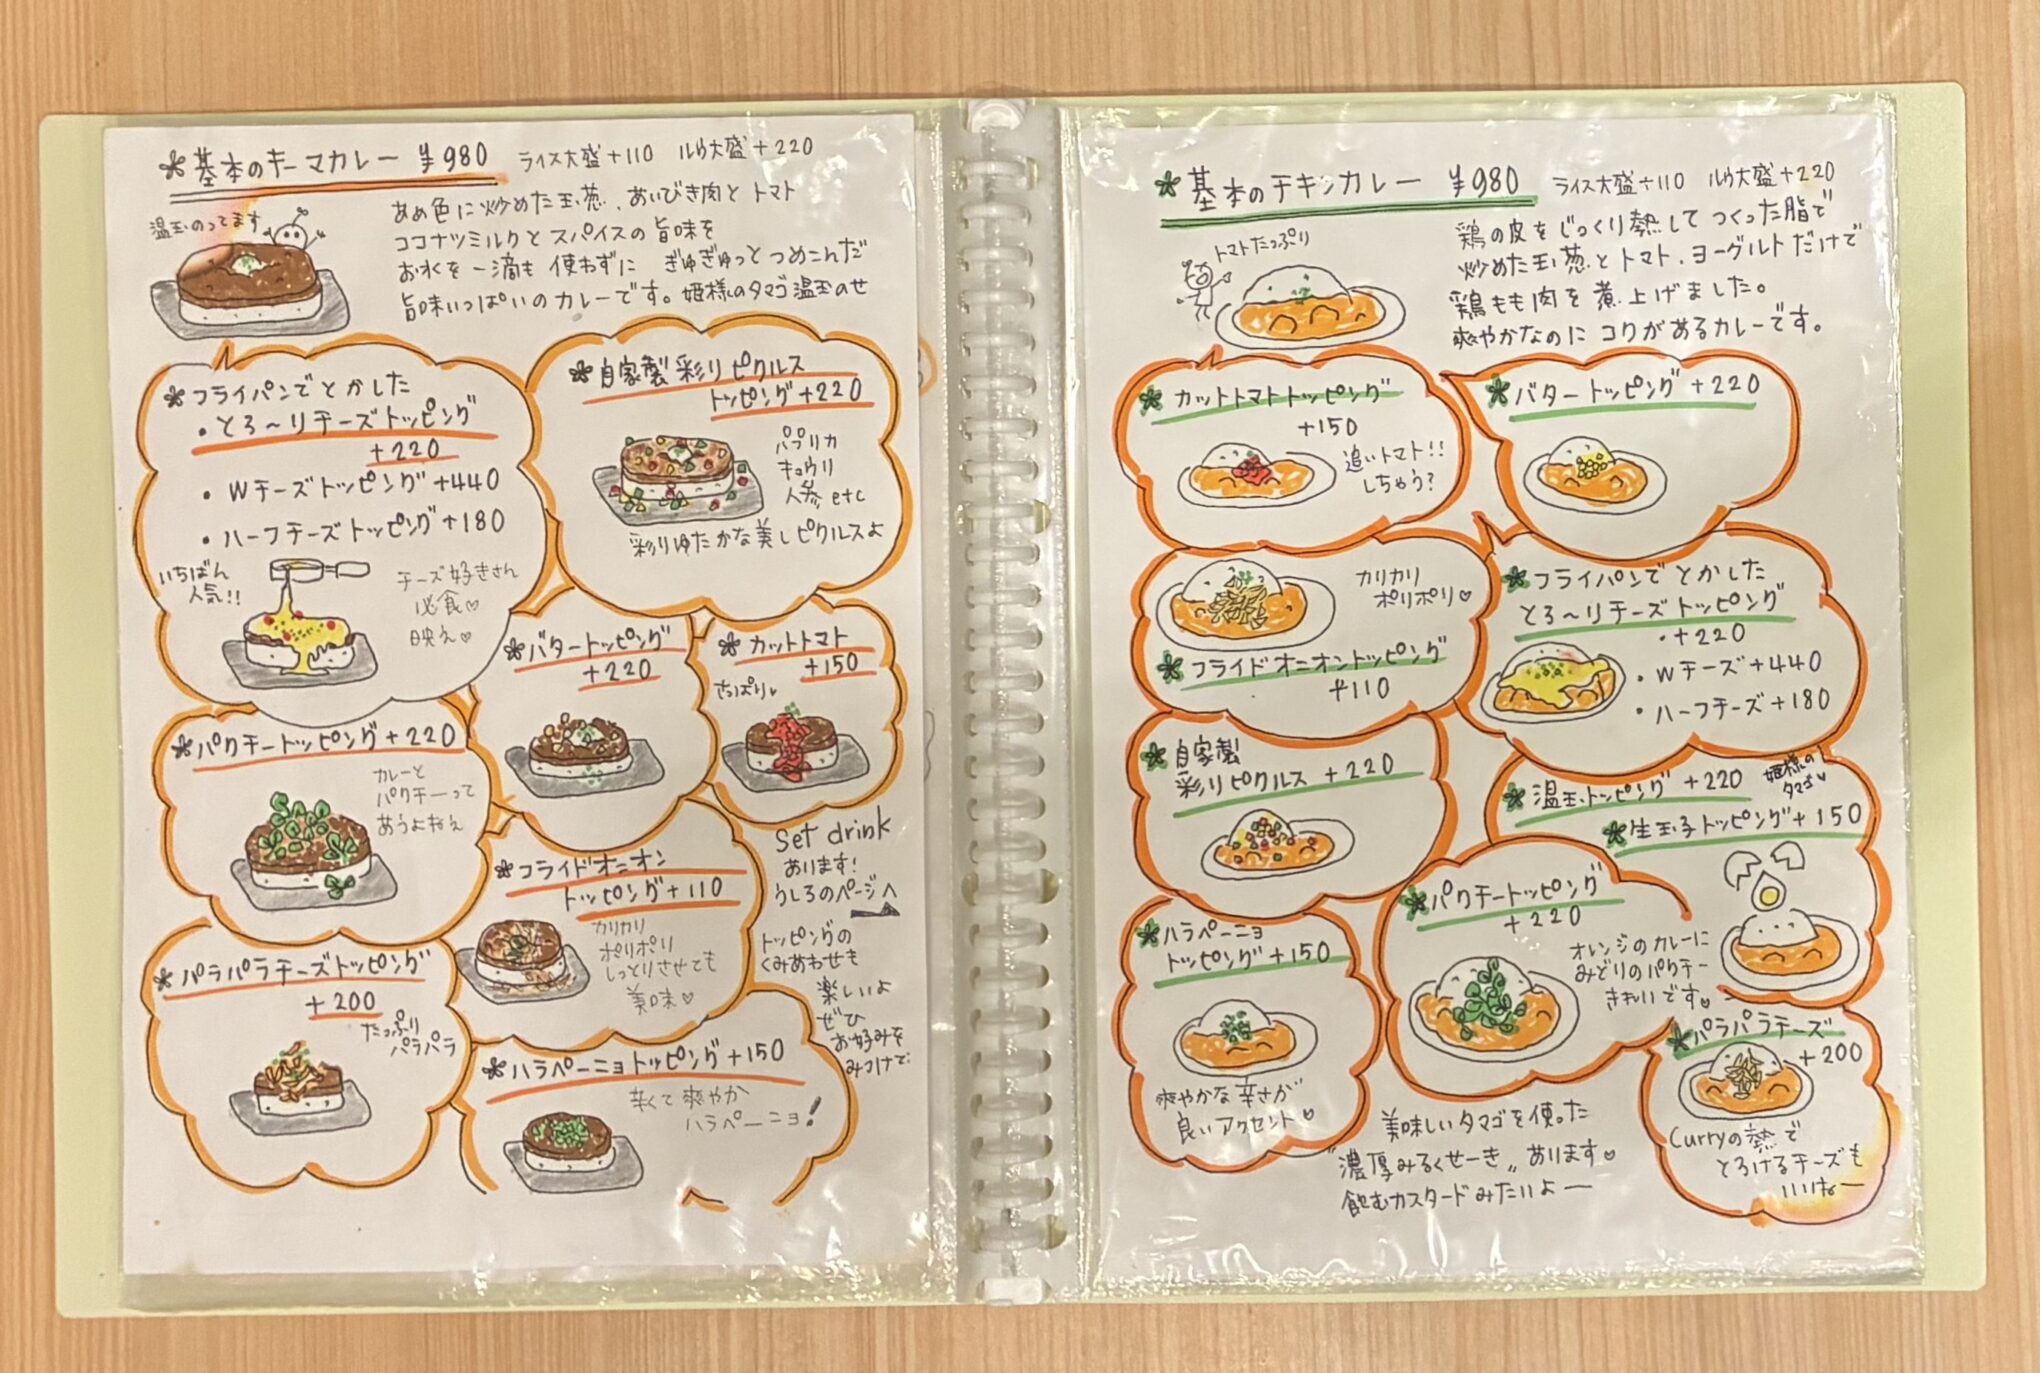 ＊基本のキーマカレー ¥980 ライス大盛+110 ルウ大盛+220
温玉のってます
あめ色に炒めた玉葱、あいびき肉とトマト
ココナツミルクとスパイスの旨味を
お水を一滴も使わずに ぎゅぎゅっとつめこんだ
旨味いっぱいのカレーです。姫様のタマゴ温玉のせ
＊フライパンでとかした
・とろ〜りチーズトッピング
+220
・Wチーズトッピング+440
・ハーフチーズトッピング+180
いちばん
人気!!
チーズ好きさん
必食♡
映え♡
＊自家製彩りピクルス
トッピング+220
パプリカ
キュウリ
人参 etc
彩りゆたかな美しピクルスよ
＊バタートッピング
+220
＊カットトマト
+150
さっぱり♥
＊パクチートッピング+220
カレーと
パクチーって
あうよねぇ
＊フライドオニオン
トッピング+110
カリカリ
ポリポリ
しっとりさせても
美味♡
set drink
あります!
うしろのページへ
トッピングの
くみあわせも
楽しいよ
ぜひ
お好みを
みつけて
＊パラパラチーズトッピング
+200
たっぷり
パラパラ
＊ハラペーニョトッピング+150
辛くて爽やか
ハラペーニョ!
＊基本のチキンカレー ¥980 ライス大盛+110 ルウ大盛+220
トマトたっぷり
鶏の皮をじっくり熱してつくった脂で
炒めた玉葱とトマト、ヨーグルトだけで
鶏もも肉を煮上げました。
爽やかなのにコクがあるカレーです。
＊カットトマトトッピング
+150
追いトマト!!
しちゃう?
＊バタートッピング+220
カリカリ
ポリポリ♡
＊フライドオニオントッピング
+110
＊フライパンでとかした
とろ〜りチーズトッピング
・+220
・Wチーズ+440
・ハーフチーズ+180
＊自家製
彩りピクルス+220
＊温玉トッピング+220
姫様の
タマゴ♥
＊生玉子トッピング+150
＊パクチートッピング
+220
オレンジのカレーに
みどりのパクチー
きれいです♥
＊ハラペーニョ
トッピング+150
爽やかな辛さが
良いアクセント♡
＊パラパラチーズ
+200
Curryの熱で
とろけるチーズも
いいねー
美味しいタマゴを使った
"濃厚みるくせーき"あります♡
飲むカスタードみたいよー